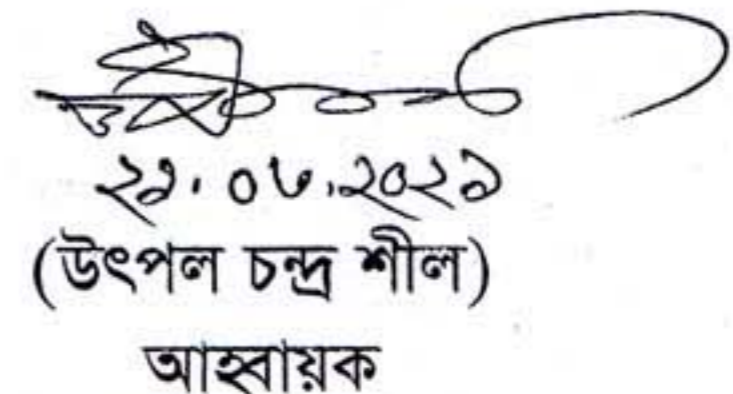 ২১.০৬.২০২১
(উৎপল চন্দ্র শীল)
আহবায়ক